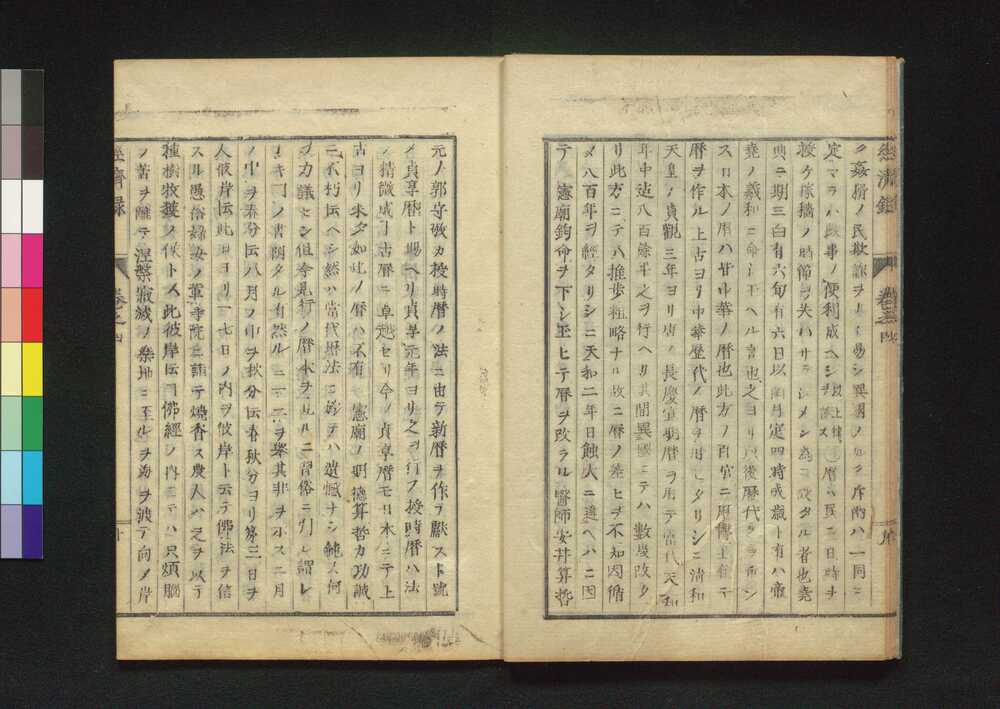 ク姦猾ノ民欺詐ヲナシ易シ異国ノ如ク斤両ハ一同ニ
定マラハ政事ノ便利成ヘシ
以上律
暦ハ民ニ日時ヲ
授ケ稼穡ノ時節ヲ失ハサラシメン為ニ設タル者也堯
典ニ期三百有六旬有六日以閏月定四時成歳ト有ハ帝
堯ノ羲和ニ命シ玉ヘル言也
暦ヲ作ル上古ヨリ中華歴代ノ暦ヲ用シタリシニ清和
天皇ノ貞観三年ヨリ唐ノ長慶宣明暦ヲ用テ当代天和
年中迄八百余年之ヲ行ヘリ其間異國ニテハ数度改タ
リ此方ニテハ推歩粗略ナル故ニ暦ノ差ヒヲ不知因循
メ八百年ヲ経タリシニ天和二年日蝕大ニ違ヘハニ因
テ 憲廟鈞命ヲ下シ玉ヒテ暦ヲ改ラル醫師安井算哲
元ノ郭守敬カ授時暦ノ法ニ由テ新暦ヲ作テ獻ス卜號
メ貞享暦ト賜ヘリ貞享元年ヨリ之ヲ行フ授時暦ハ法
ノ精微成丁古暦ニ卓越セリ今ノ貞享暦モ日本ニテ上
古ヨリ未タ如此ノ暦ハ不有 憲廟ノ明徳算哲カ功誠
ニ不朽伝ヘシ然ハ當代暦法ニ於テハ遺憾ナシ純又何
ヲカ議セン但今見行ノ暦本ヲ見ルニ習俗ニ引レ謂レ
ノ中ヲ春分伝八月ノ中ヲ秋分伝春秋分ヨリ第三日ヲ
人彼岸伝此日ヨリ一七日ノ内ヲ彼岸ト云テ佛法ヲ信
スル愚俗婦女ノ輩寺院ニ詣テ焼香ス農人ハ之ヲ以テ
種樹牧藝ノ候トス此彼岸伝フ佛経ノ内ニテハ只煩脳
ノ苦ヲ離テ涅槃寂滅ノ楽地ニ至ルヲ海ヲ渡テ向ノ岸
經濟録
巻之四